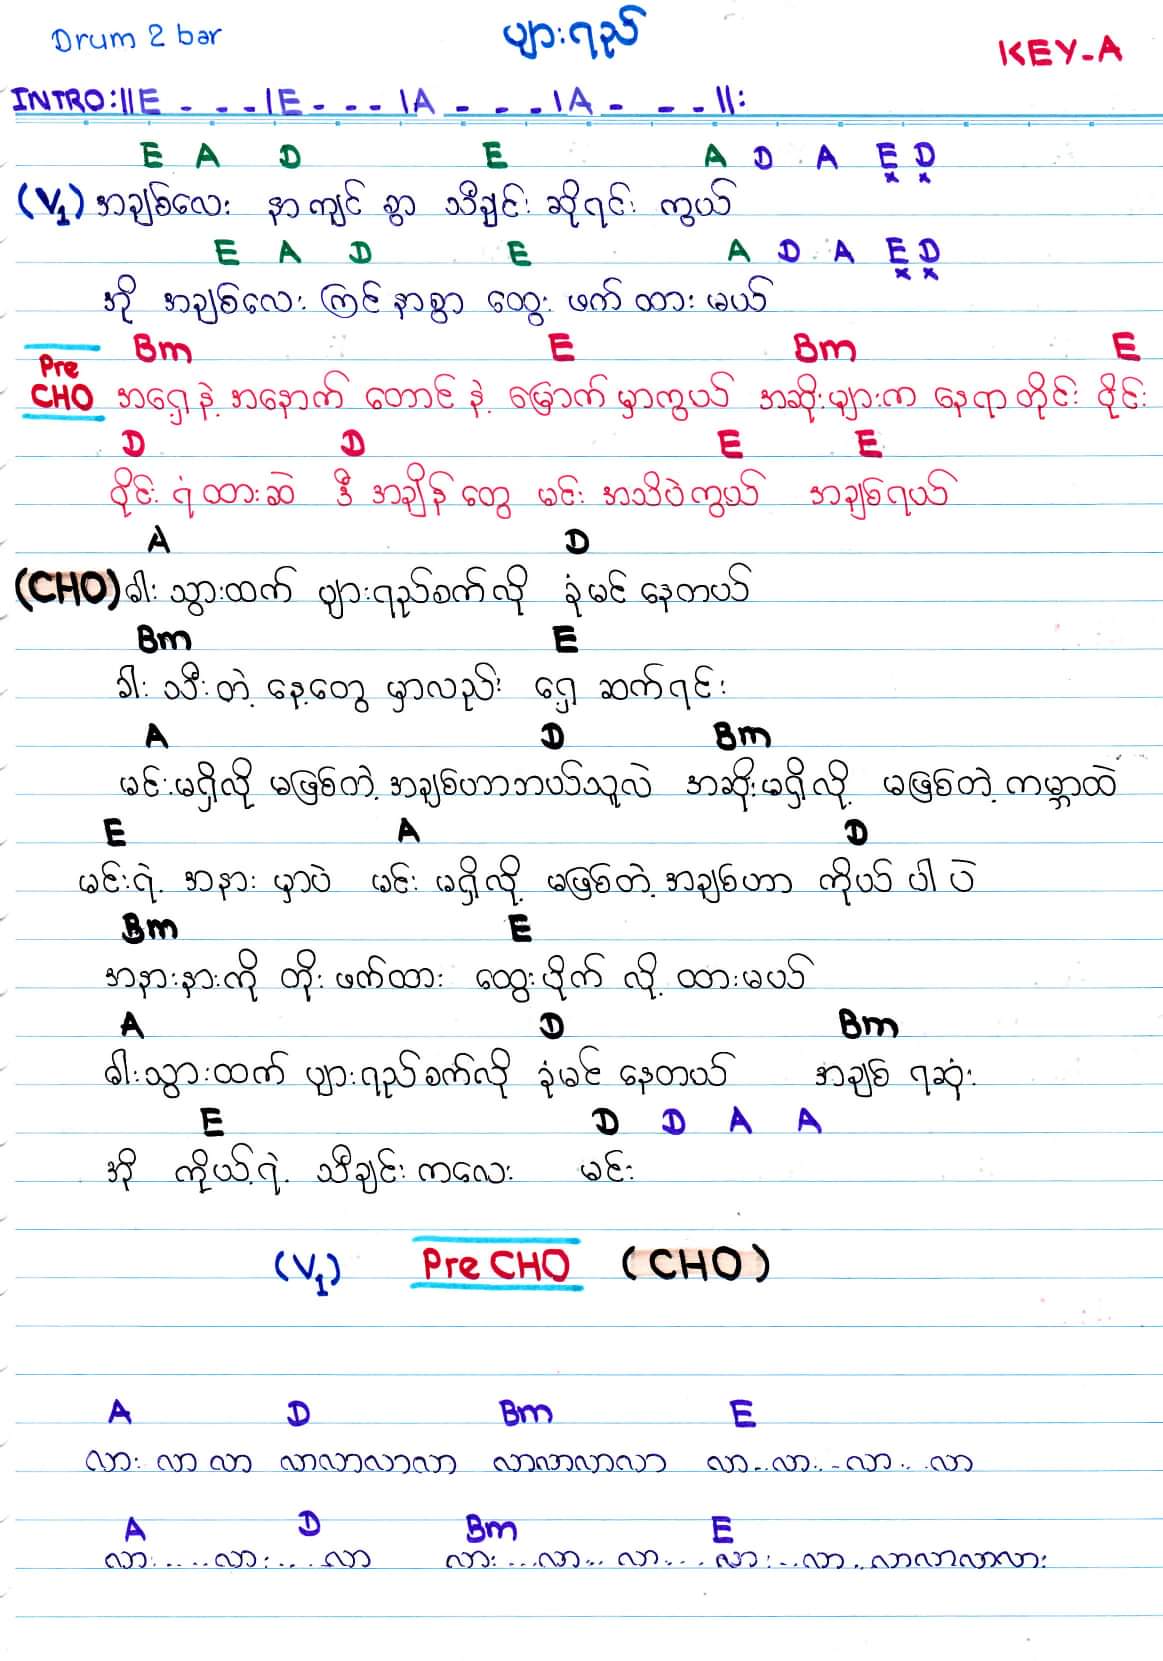 Drum 2 bar ပျားရည် KEY-A
INTRO:||E - - - |E - - - |A - - - |A - - - ||:
E A D E A D A E D
x x
(V1) အချစ်လေး နာကျင် စွာ သီချင်း ဆိုရင်း ကွယ်
E A D E A D A E D
x x
အို အချစ်လေး ကြင် နာစွာ ထွေး ဖက် ထား မယ်
Bm E Bm E
Pre CHO အရှေ့နဲ့ အနောက် တောင် နဲ့ မြောက် မှာကွယ် အဆိုးများက နေရာ တိုင်း ဝိုင်း
D D E E
ဝိုင်း ရံ ထားဆဲ ဒီ အချိန် တွေ မင်း အသိပဲကွယ် အချစ်ရယ်
A D
(CHO) ဓါး သွားထက် ပျားရည်စက်လို ခုံမင် နေတယ်
Bm E
ခါး သီး တဲ့ နေ့တွေ မှာလည်း ရှေ့ ဆက်ရင်း
A D Bm
မင်းမရှိလို မဖြစ်တဲ့ အချစ်ဟာဘယ်သူလဲ အဆိုးမရှိလို့ မဖြစ်တဲ့ ကမ္ဘာထဲ
E A D
မင်းရဲ့ အနား မှာပဲ မင်း မရှိလို့ မဖြစ်တဲ့ အချစ်ဟာ ကိုယ် ပါ ပဲ
Bm E
အနားနားကို တိုး ဖက်ထား ထွေးပိုက် လို့ ထားမယ်
A D Bm
ဓါးသွားထက် ပျားရည်စက်လို ခုံမင် နေတယ် အချစ် ရဆုံး
E D D A A
အို ကိုယ့်ရဲ့ သီချင်း ကလေး မင်း
(V1) Pre CHO (CHO)
A D Bm E
လား လာ လာ လာလာလာလာ လာလာလာလာ လာ..လာ..-လာ..လာ
A D Bm E
လာ:....လာ:...လာ လား...လာ.. လာ....လာ:..လာ..လာလာလာလား